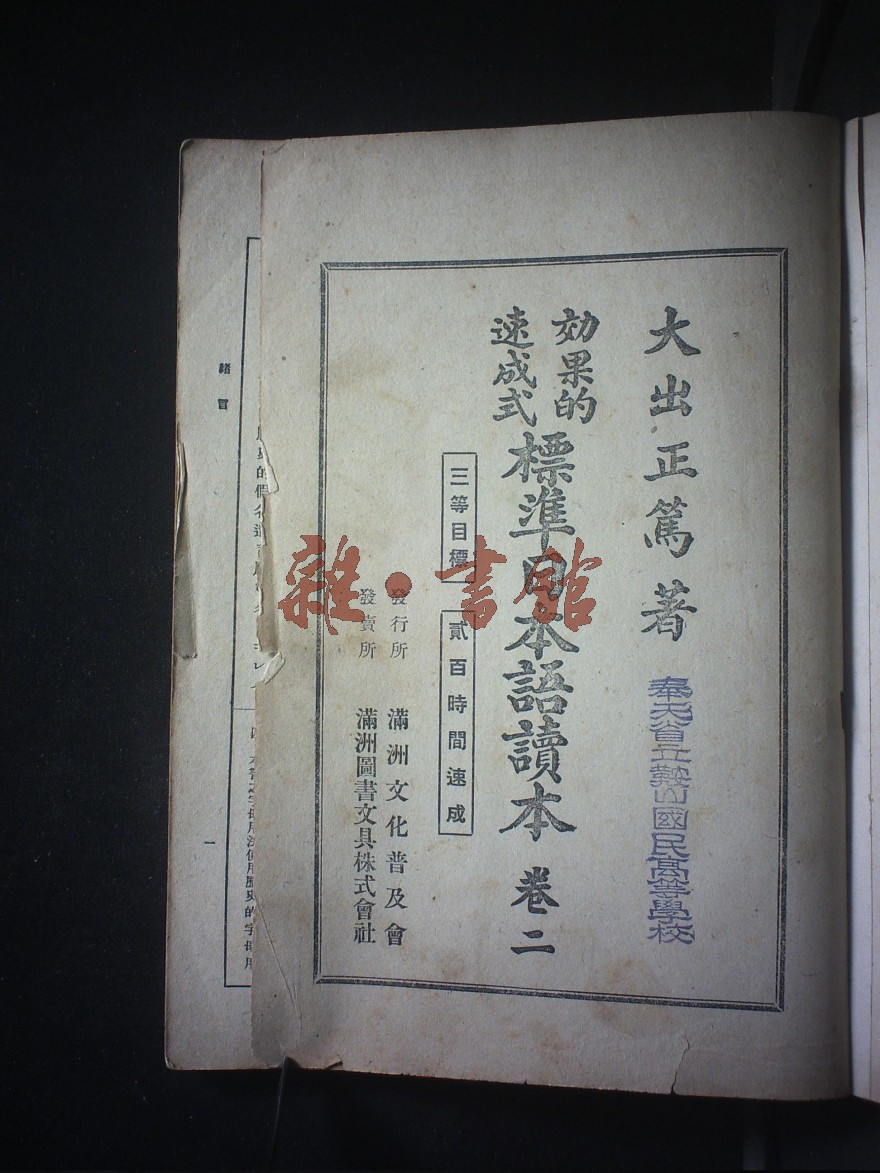 大出正篤著
奉天省立鞍山國民高等學校
効果的
速成式
標準日本語讀本 卷二
三等目標
貳百時間速成
發行所 滿洲文化普及會
發賣所 滿洲圖書文具株式會社
雜·書館
緒言
一